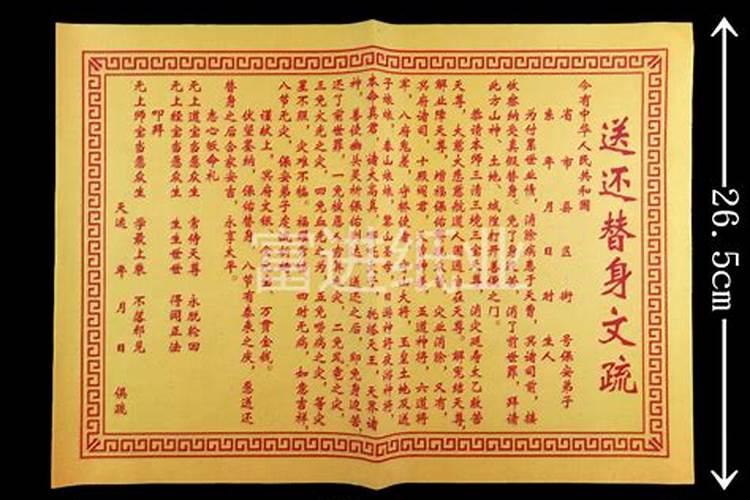 送还替身文疏
今有中华人民共和国
省 市 县 区 街 号保安弟子
系 年 月 日 时 生人
为付累世业债，消除病患于天曹，冥诸司前，接
收察纳受真假替身。免了
消了前世罪，拜请
此方山神、土地、城隍
开善便之门。
恭请本师三清三境
消灾延寿太乙救苦
天尊，大慈大悲
在天尊。解冤结天尊，
解业障天尊，增福保佑
灾业消除，又有
冥府诸司，十殿阎君，
五道神将，六道将
军，八府鬼差，守
大将，玉皇土地及送
子娘娘，泰山娘娘，
日游神将夜游神将，
本命真君，诸大高真，
托塔天王，天界诸
神，善使幽头灵所保佑
送还之后，即免身边苦，
还了前世罪，一免
二免风雹之灾，
三免火光之灾，四免血
五免哈病之灾，等灾
星不照，灾难不临。福
四时无病，如意吉祥。
八节无灾，保安弟子
谨献上，冥府文银
万贯金钱。
伏望鉴纳，保佑替身
八节有泰来之庆，愿送还
替身之后合家安吉，永享太平。
志心皈命礼
无上道宝当愿众生 常侍天尊 永脱轮回
无上经宝当愿众生 生生世世 得闻正法
叩拜
无上师宝当愿众生 学最上乘 不落邪见
天运 年 月 日 俱疏
富进纸业
26.5cm